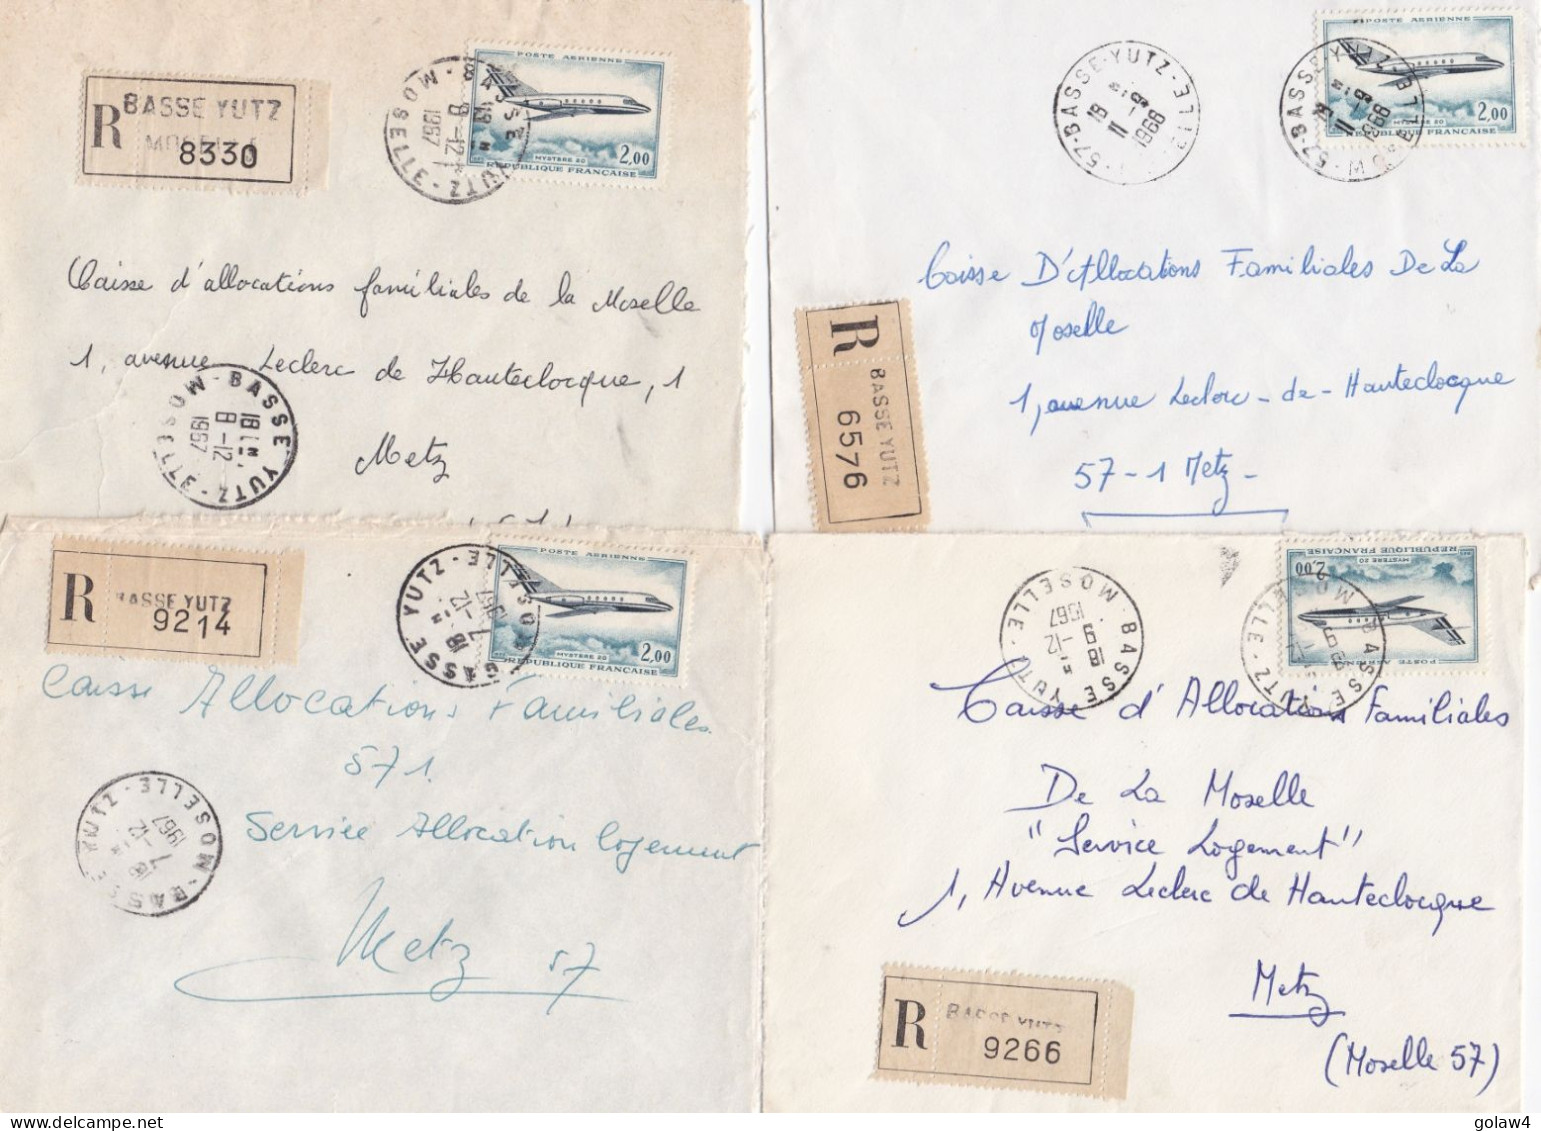 R
BASSE YUTZ
8330
POSTE AERIENNE
MYSTERE 20
2,00
REPUBLIQUE FRANÇAISE
BASSE YUTZ - MOSELLE
8-12
1967
Caisse d'allocations familiales de la Moselle
1, avenue Leclerc de Hauteclocque, 1
Metz
BASSE YUTZ - MOSELLE
18H
8-12
1967
57-BASSE-YUTZ
18H
8-
11
1968
57-BASSE-YUTZ
18H
8-
11
1968
POSTE AERIENNE
MYSTERE 20
2,00
REPUBLIQUE FRANÇAISE
Caisse D'Allocations Familiales De La
Moselle
1, avenue Leclerc - de - Hauteclocque
57-1 Metz-
R
BASSE YUTZ
6576
R
BASSE YUTZ
9214
BASSE YUTZ - MOSELLE
18H
7-12
1967
POSTE AERIENNE
MYSTERE 20
2,00
REPUBLIQUE FRANÇAISE
Caisse Allocations Familiales
571.
Service Allocation logement
Metz 57
BASSE YUTZ - MOSELLE
18H
7-12
1967
BASSE YUTZ - MOSELLE
18H
9-12
1967
BASSE YUTZ - MOSELLE
POSTE AERIENNE
MYSTERE 20
2,00
REPUBLIQUE FRANÇAISE
Caisse d'Allocations Familiales
De La Moselle
"Service Logement"
1, Avenue Leclerc de Hauteclocque
Metz
(Moselle 57)
R
BASSE YUTZ
9266
golaw4